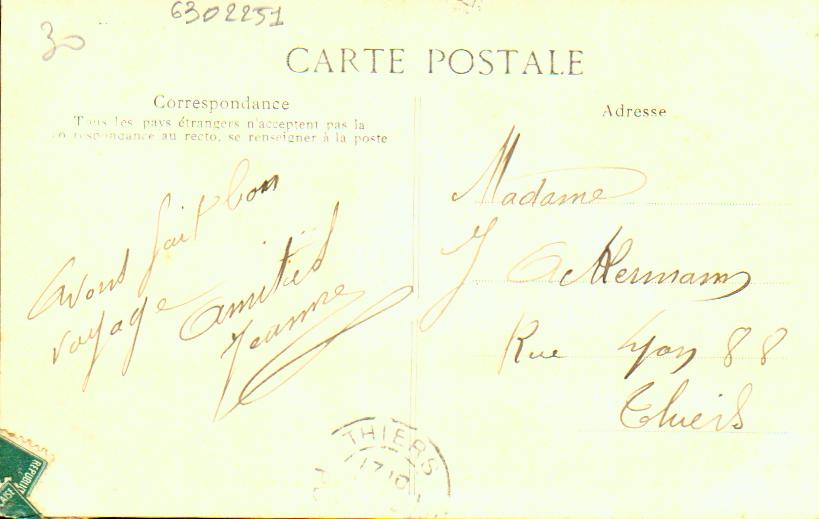 6302251
30
CARTE POSTALE
Correspondance
Tous les pays étrangers n'acceptent pas la
correspondance au recto, se renseigner à la poste
Adresse
avons fait bon
voyage amitiés
Jeanne
Madame
J Ackermann
Rue Lyon 88
Thiers
THIERS
17 10
REPUBLI